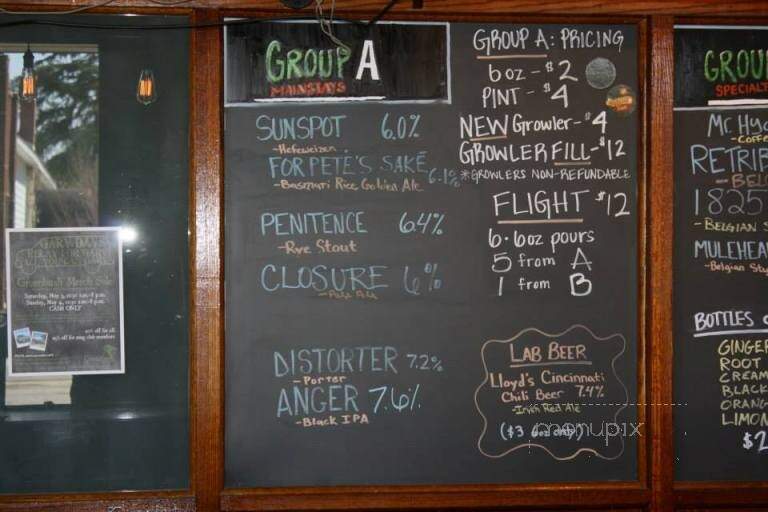 GROUP A
MAINSTAYS
SUNSPOT 6.0%
-Hefeweizen
FOR PETE'S SAKE 6.1%
-Basmati Rice Golden Ale
PENITENCE 6.4%
-Rye Stout
CLOSURE 6%
-Pale Ale
DISTORTER 7.2%
-Porter
ANGER 7.6%
-Black IPA
GROUP A: PRICING
6 oz - $2
PINT - $4
NEW Growler - $4
GROWLER FILL - $12
*GROWLERS NON-REFUNDABLE
FLIGHT $12
6 - 6oz pours
5 from A
1 from B
LAB BEER
Lloyd's Cincinnati
Chili Beer 7.4%
-Irish Red Ale
($3 6oz only)
menupix
GROUP
SPECIALT
MC HYG
-COFFE
RETRIB
-BELG
1825
-BELGIAN S
MULEHEA
-Belgian Sty
BOTTLES
GINGER
ROOT
CREAM
BLACK
ORANG
LIMON
$2
Saturday, May 3,
Sunday, May 4,
CASH ONLY